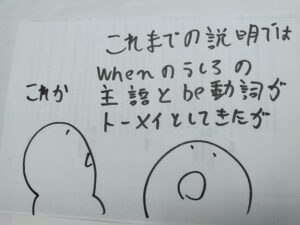 これまでの説明では
whenのうしろの
主語とbe動詞が
トーメイとしてきたが
これか